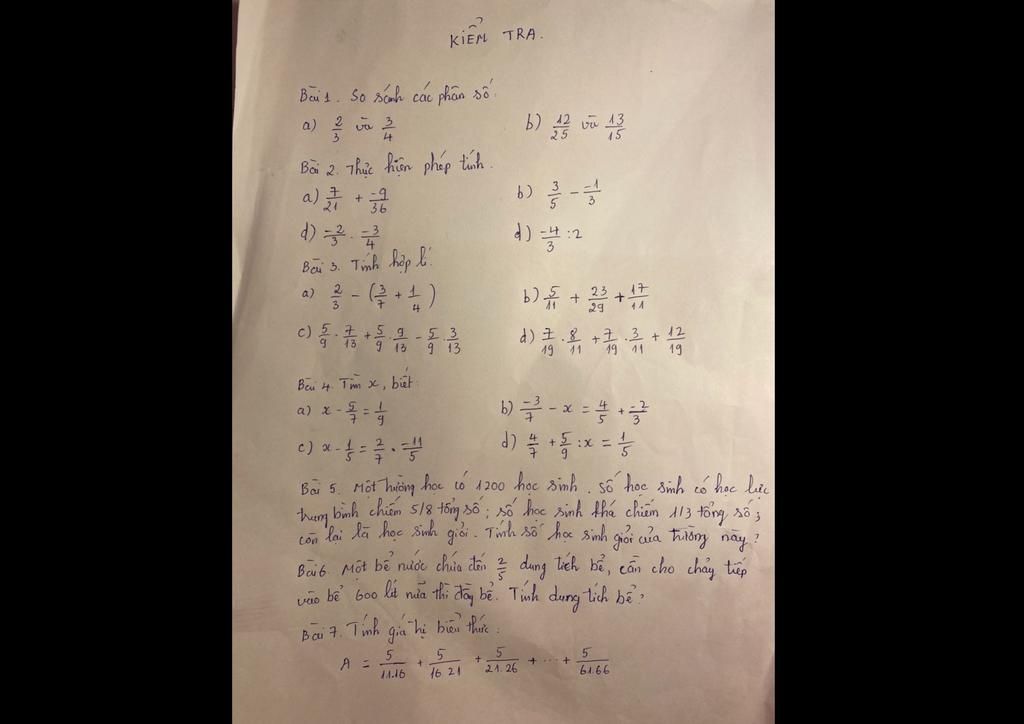 KIỂM TRA.
Bài 1. So sánh các phân số.
a) 2/3 và 3/4 b) 12/25 và 13/15
Bài 2. Thực hiện phép tính.
a) 7/21 + -9/36 b) 3/5 - -1/3
d) -2/3 . -3/4 d) -4/3 : 2
Bài 3. Tính hợp lí.
a) 2/3 - (3/7 + 1/4) b) 5/11 + 23/29 + 17/11
c) 5/9 . 7/13 + 5/9 . 9/13 - 5/9 . 3/13 d) 7/19 . 8/11 + 7/19 . 3/11 + 12/19
Bài 4. Tìm x, biết:
a) x - 5/7 = 1/9 b) -3/7 - x = 4/5 + -2/3
c) x - 1/5 = 2/7 . -11/5 d) 4/7 + 5/9 : x = 1/5
Bài 5. Một trường học có 1200 học sinh. Số học sinh có học lực
trung bình chiếm 5/8 tổng số; số học sinh khá chiếm 1/3 tổng số;
còn lại là học sinh giỏi. Tính số học sinh giỏi của trường này?
Bài 6. Một bể nước chứa đến 2/5 dung tích bể, cần cho chảy tiếp
vào bể 600 lít nữa thì đầy bể. Tính dung tích bể?
Bài 7. Tính giá trị biểu thức:
A = 5/11.16 + 5/16.21 + 5/21.26 + ... + 5/61.66